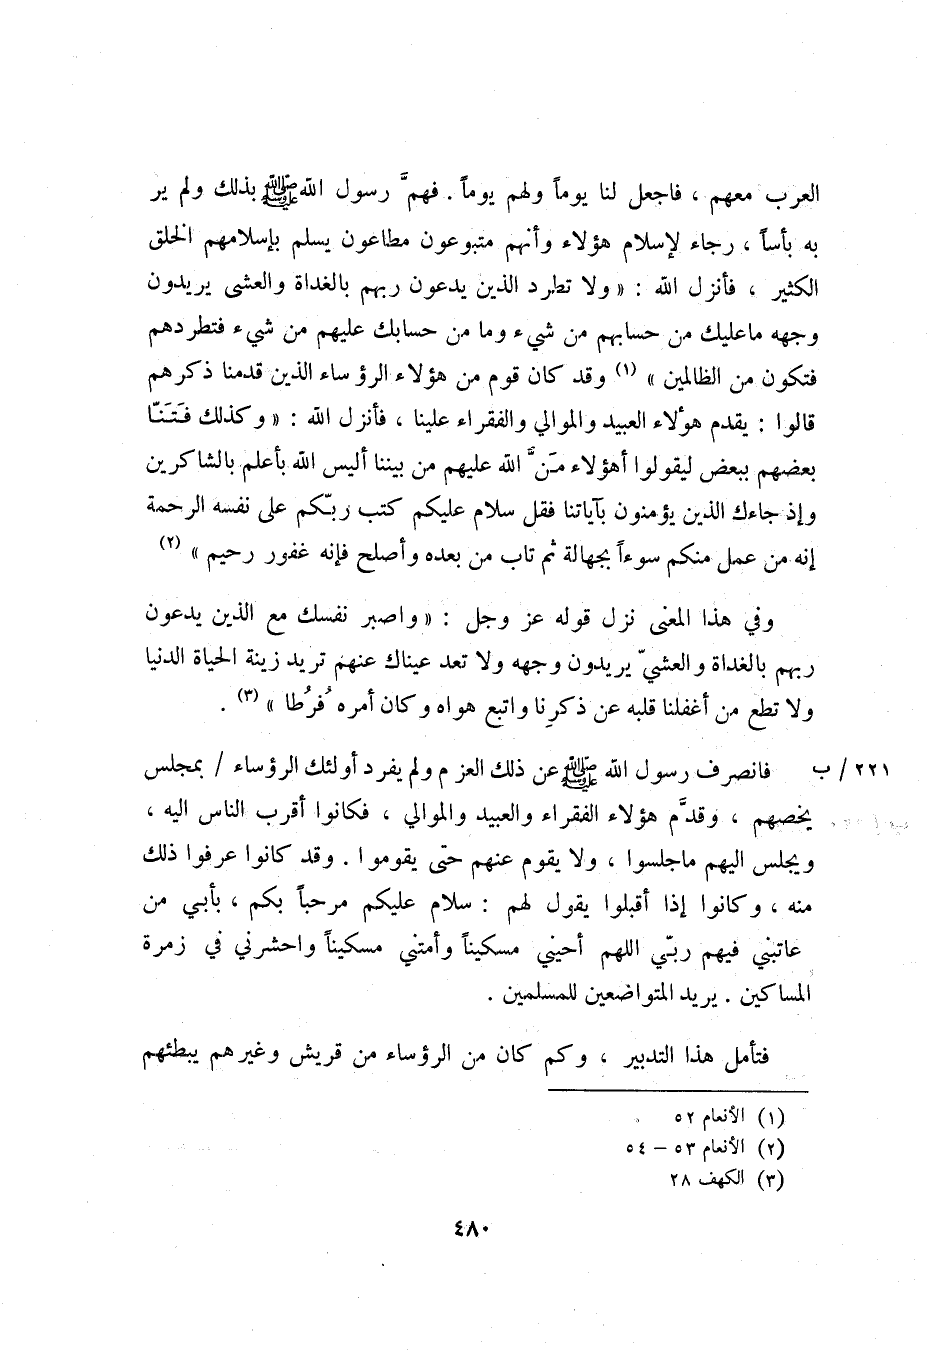 العرب معهم ، فاجعل لنا يوماً ولهم يوماً . فهمَّ رسول الله ﷺ بذلك ولم ير
به بأساً ، رجاء لإسلام هؤلاء وأنهم متبوعون مطاعون يسلم بإسلامهم الخلق
الكثير ، فأنزل الله : « ولا تطرد الذين يدعون ربهم بالغداة والعشى يريدون
وجهه ماعليك من حسابهم من شيء وما من حسابك عليهم من شيء فتطردهم
فتكون من الظالمين » (١) وقد كان قوم من هؤلاء الرؤساء الذين قدمنا ذكرهم
قالوا : يقدم هؤلاء العبيد والموالي والفقراء علينا ، فأنزل الله : « وكذلك فَتَنَّا
بعضهم ببعض ليقولوا أهؤلاء مَنَّ الله عليهم من بيننا أليس الله بأعلم بالشاكرين
وإذ جاءك الذين يؤمنون بآياتنا فقل سلام عليكم كتب ربّكم على نفسه الرحمة
إنه من عمل منكم سوءاً بجهالة ثم تاب من بعده وأصلح فإنه غفور رحيم » (٢)
وفي هذا المعنى نزل قوله عز وجل : « واصبر نفسك مع الذين يدعون
ربهم بالغداة والعشيّ يريدون وجهه ولا تعد عيناك عنهم تريد زينة الحياة الدنيا
ولا تطع من أغفلنا قلبه عن ذكرنا واتبع هواه وكان أمره فُرُطا » (٣) .
٢٢١ / ب فانصرف رسول الله ﷺ عن ذلك العزم ولم يفرد أولئك الرؤساء / بمجلس
يخصهم ، وقدَّم هؤلاء الفقراء والعبيد والموالي ، فكانوا أقرب الناس اليه ،
ويجلس اليهم ماجلسوا ، ولا يقوم عنهم حتى يقوموا . وقد كانوا عرفوا ذلك
منه ، وكانوا إذا أقبلوا يقول لهم : سلام عليكم مرحباً بكم ، بأبي من
عاتبني فيهم ربّي اللهم أحيني مسكيناً وأمتني مسكيناً واحشرني في زمرة
المساكين . يريد المتواضعين للمسلمين .
فتأمل هذا التدبير ، وكم كان من الرؤساء من قريش وغيرهم يبطئهم
(١) الأنعام ٥٢
(٢) الأنعام ٥٣ – ٥٤
(٣) الكهف ٢٨
٤٨٠